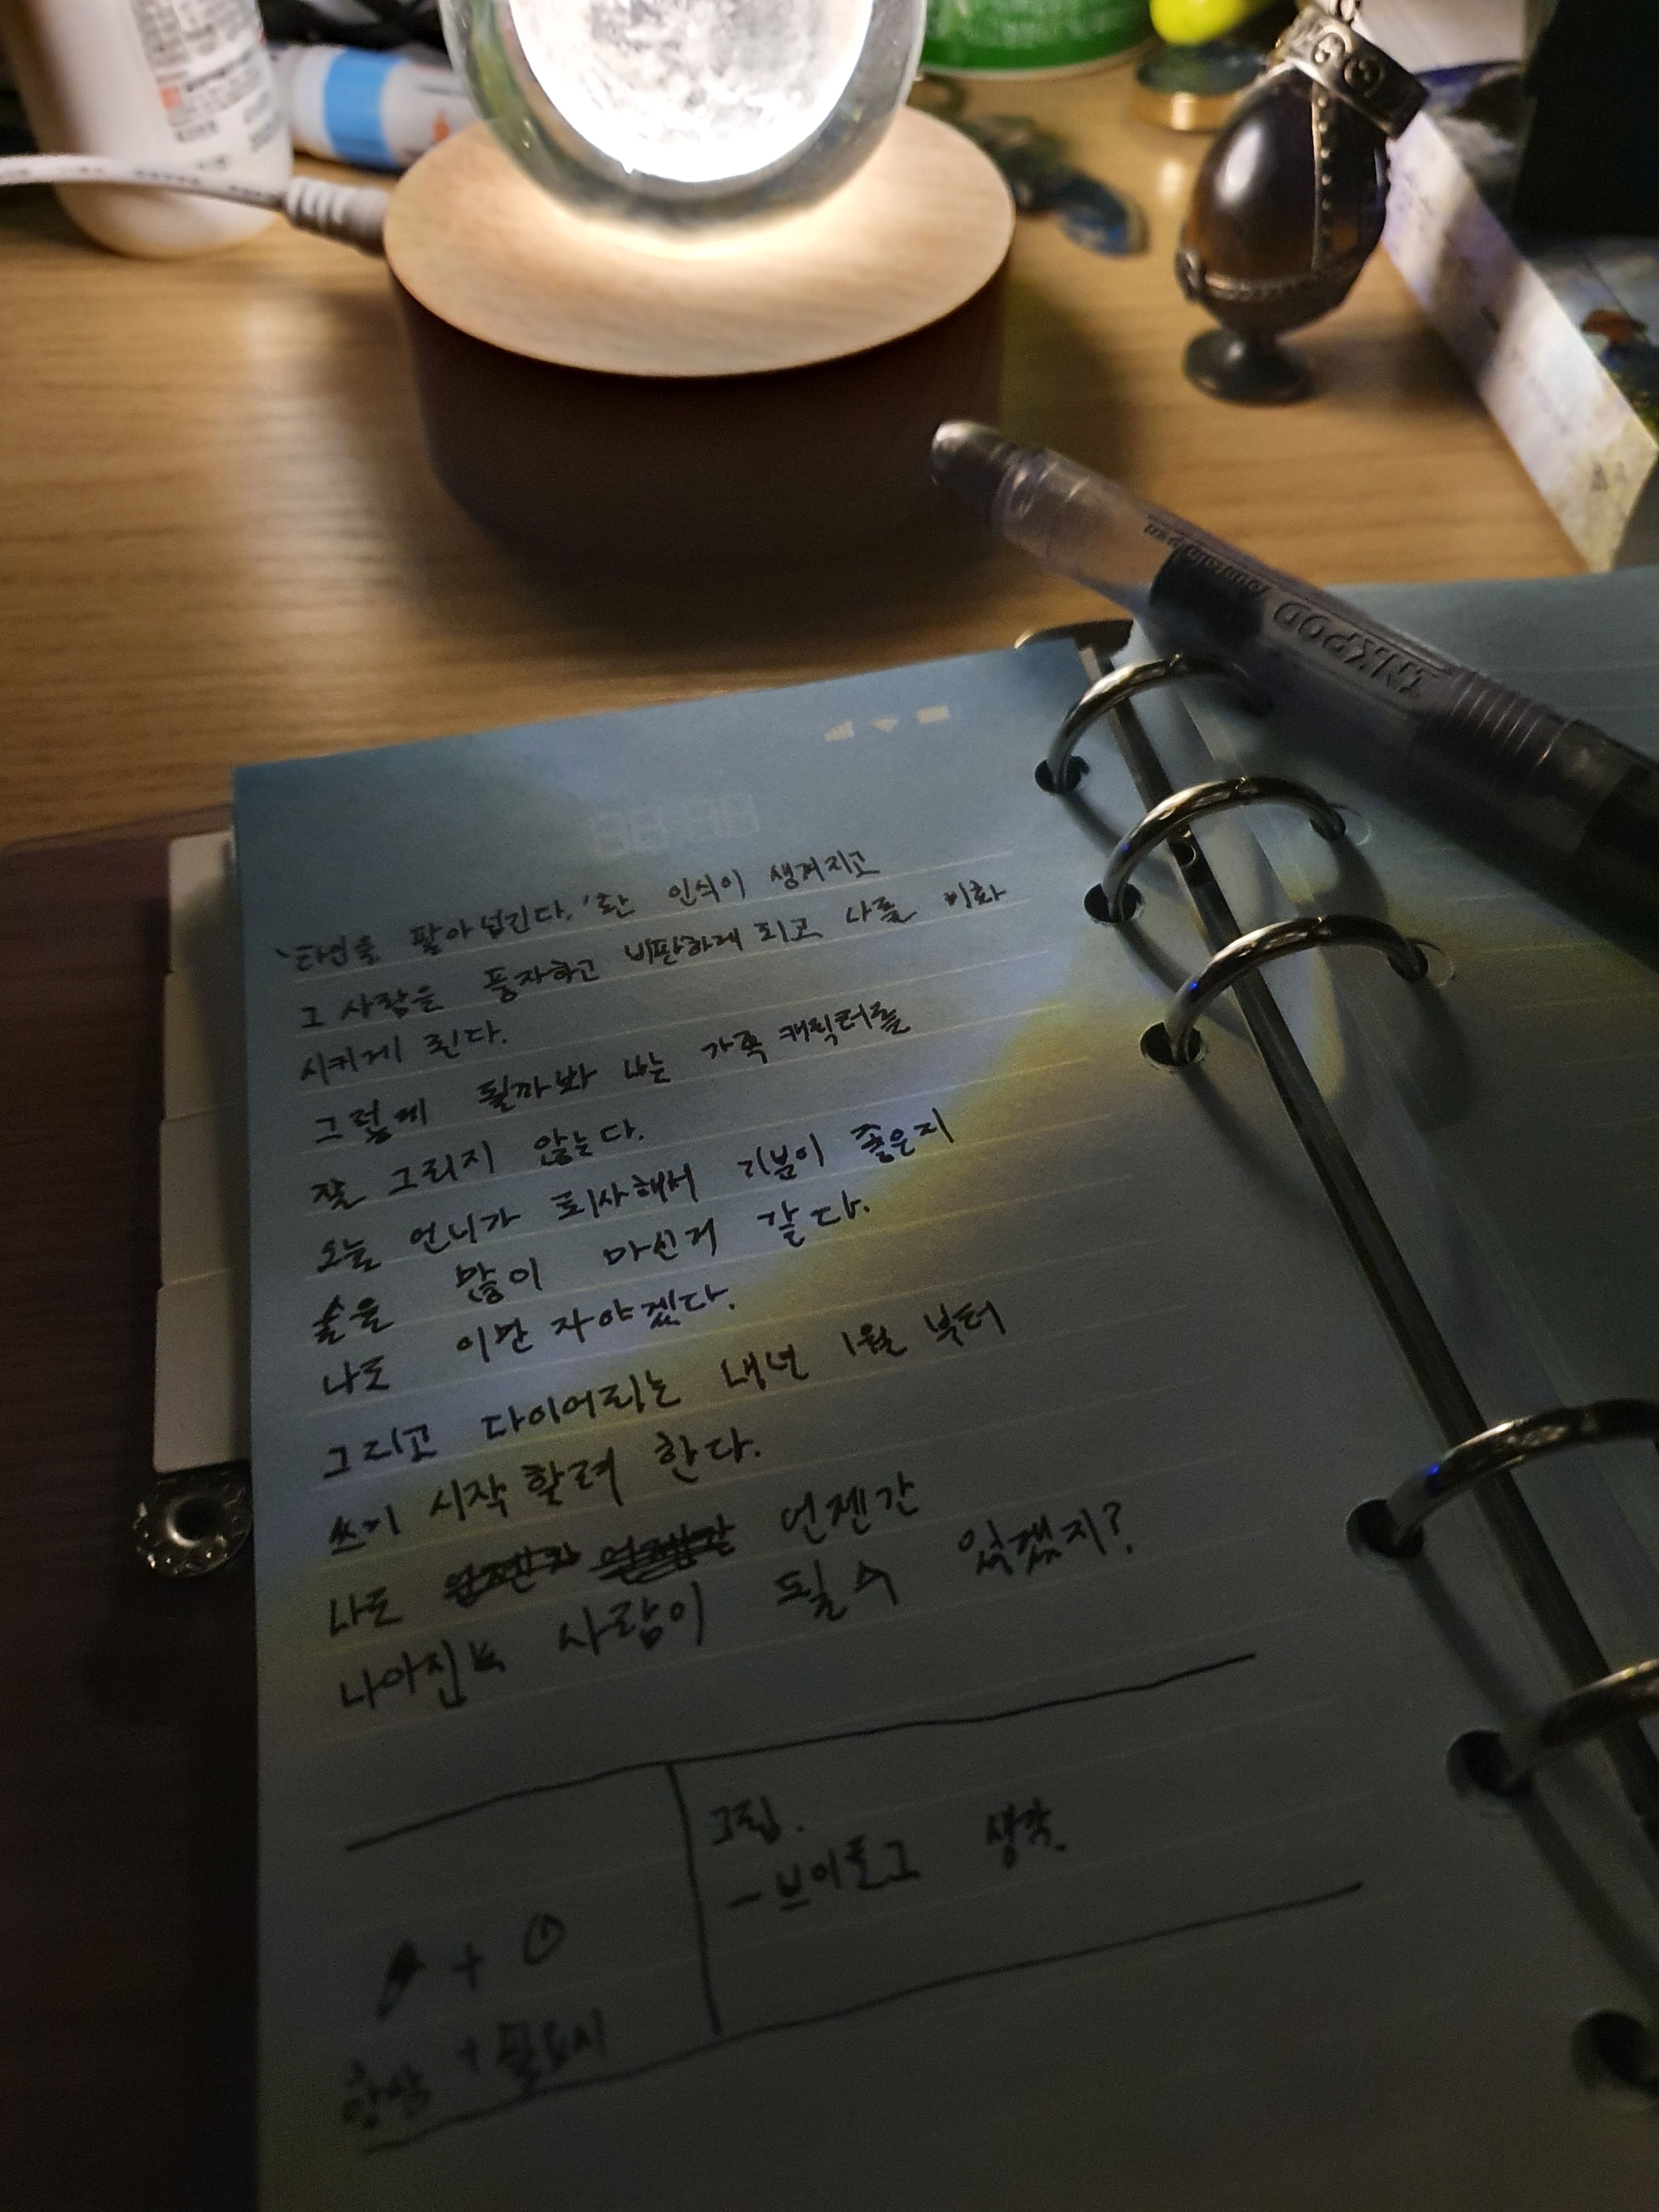 INKPOD
fountain pen
'타인을 팔아넘긴다.'란 인식이 생겨지고
그 사람을 풍자하고 비판하게 되고 나를 비화
시키게 된다.
그렇게 될까봐 나는 가족 캐릭터를
잘 그리지 않는다.
오늘 언니가 퇴사해서 기분이 좋은지
술을 많이 마신거 같다.
나도 이만 자야겠다.
그리고 다이어리는 내년 1월 부터
쓰기 시작 할려 한다.
나도 언젠간
나아진 사람이 될 수 있겠지?
그림.
- 브이로그 생각.
+
+